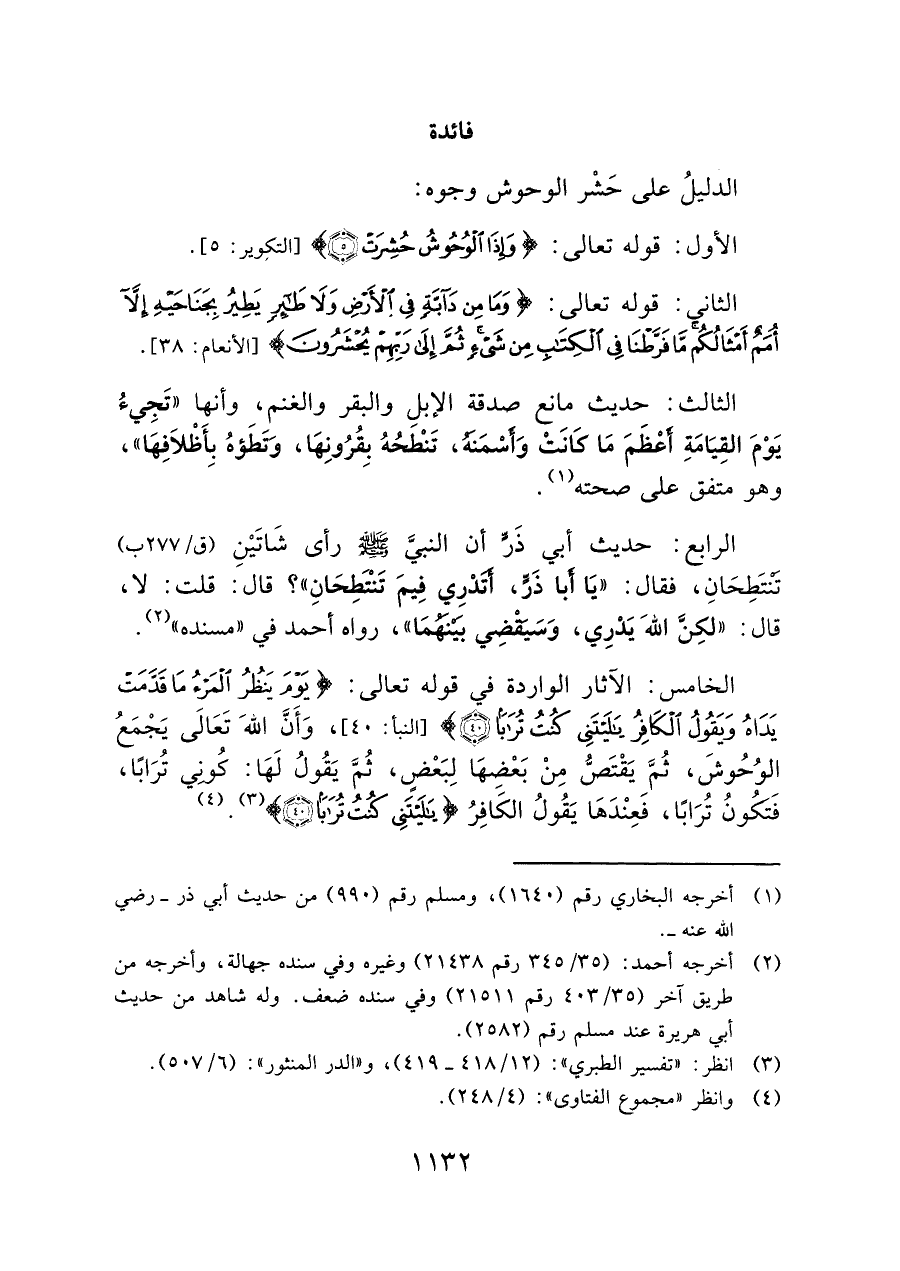 فائدة
الدليلُ على حَشْر الوحوش وجوه:
الأول: قوله تعالى: ﴿وَإِذَا ٱلْوُحُوشُ حُشِرَتْ ۝٥﴾ [التكوير: ٥].
الثاني: قوله تعالى: ﴿وَمَا مِن دَآبَّةٍ فِى ٱلْأَرْضِ وَلَا طَٰٓئِرٍ يَطِيرُ بِجَنَاحَيْهِ إِلَّآ
أُمَمٌ أَمْثَالُكُم ۚ مَّا فَرَّطْنَا فِى ٱلْكِتَٰبِ مِن شَىْءٍ ۚ ثُمَّ إِلَىٰ رَبِّهِمْ يُحْشَرُونَ﴾ [الأنعام: ٣٨].
الثالث: حديث مانع صدقة الإبل والبقر والغنم، وأنها «تَجِيءُ
يَوْمَ القِيَامَةِ أَعْظَمَ مَا كَانَتْ وَأَسْمَنَهُ، تَنْطَحُهُ بِقُرُونِهَا، وَتَطَؤهُ بِأَظْلاَفِهَا»،
وهو متفق على صحته(١).
الرابع: حديث أبي ذَرٍّ أن النبيَّ ﷺ رأى شَاتَيْنِ (ق/٢٧٧ب)
تَنْتَطِحَانِ، فقال: «يَا أَبا ذَرٍّ، أَتَدْرِي فِيمَ تَنْتَطِحَانِ»؟ قال: قلت: لا،
قال: «لكِنَّ اللهَ يَدْرِي، وَسَيَقْضِي بَيْنَهُمَا»، رواه أحمد في «مسنده»(٢).
الخامس: الآثار الواردة في قوله تعالى: ﴿يَوْمَ يَنظُرُ ٱلْمَرْءُ مَا قَدَّمَتْ
يَدَاهُ وَيَقُولُ ٱلْكَافِرُ يَٰلَيْتَنِى كُنتُ تُرَٰبًۢا ۝٤٠﴾ [النبأ: ٤٠]، وَأَنَّ اللهَ تَعَالَى يَجْمَعُ
الوُحُوشَ، ثُمَّ يَقْتَصُّ مِنْ بَعْضِهَا لِبَعْضٍ، ثُمَّ يَقُولُ لَهَا: كُونِي تُرَابًا،
فَتَكُونُ تُرَابًا، فَعِنْدَهَا يَقُولُ الكَافِرُ ﴿يَٰلَيْتَنِى كُنتُ تُرَٰبًۢا ۝٤٠﴾(٣) .(٤)
(١) أخرجه البخاري رقم (١٦٤٠)، ومسلم رقم (٩٩٠) من حديث أبي ذر ـ رضي
الله عنه ـ.
(٢) أخرجه أحمد: (٣٤٥/٣٥ رقم ٢١٤٣٨) وغيره وفي سنده جهالة، وأخرجه من
طريق آخر (٤٠٣/٣٥ رقم ٢١٥١١) وفي سنده ضعف. وله شاهد من حديث
أبي هريرة عند مسلم رقم (٢٥٨٢).
(٣) انظر: «تفسير الطبري»: (٤١٨/١٢ ـ ٤١٩)، و«الدر المنثور»: (٥٠٧/٦).
(٤) وانظر «مجموع الفتاوى»: (٢٤٨/٤).
١١٣٢